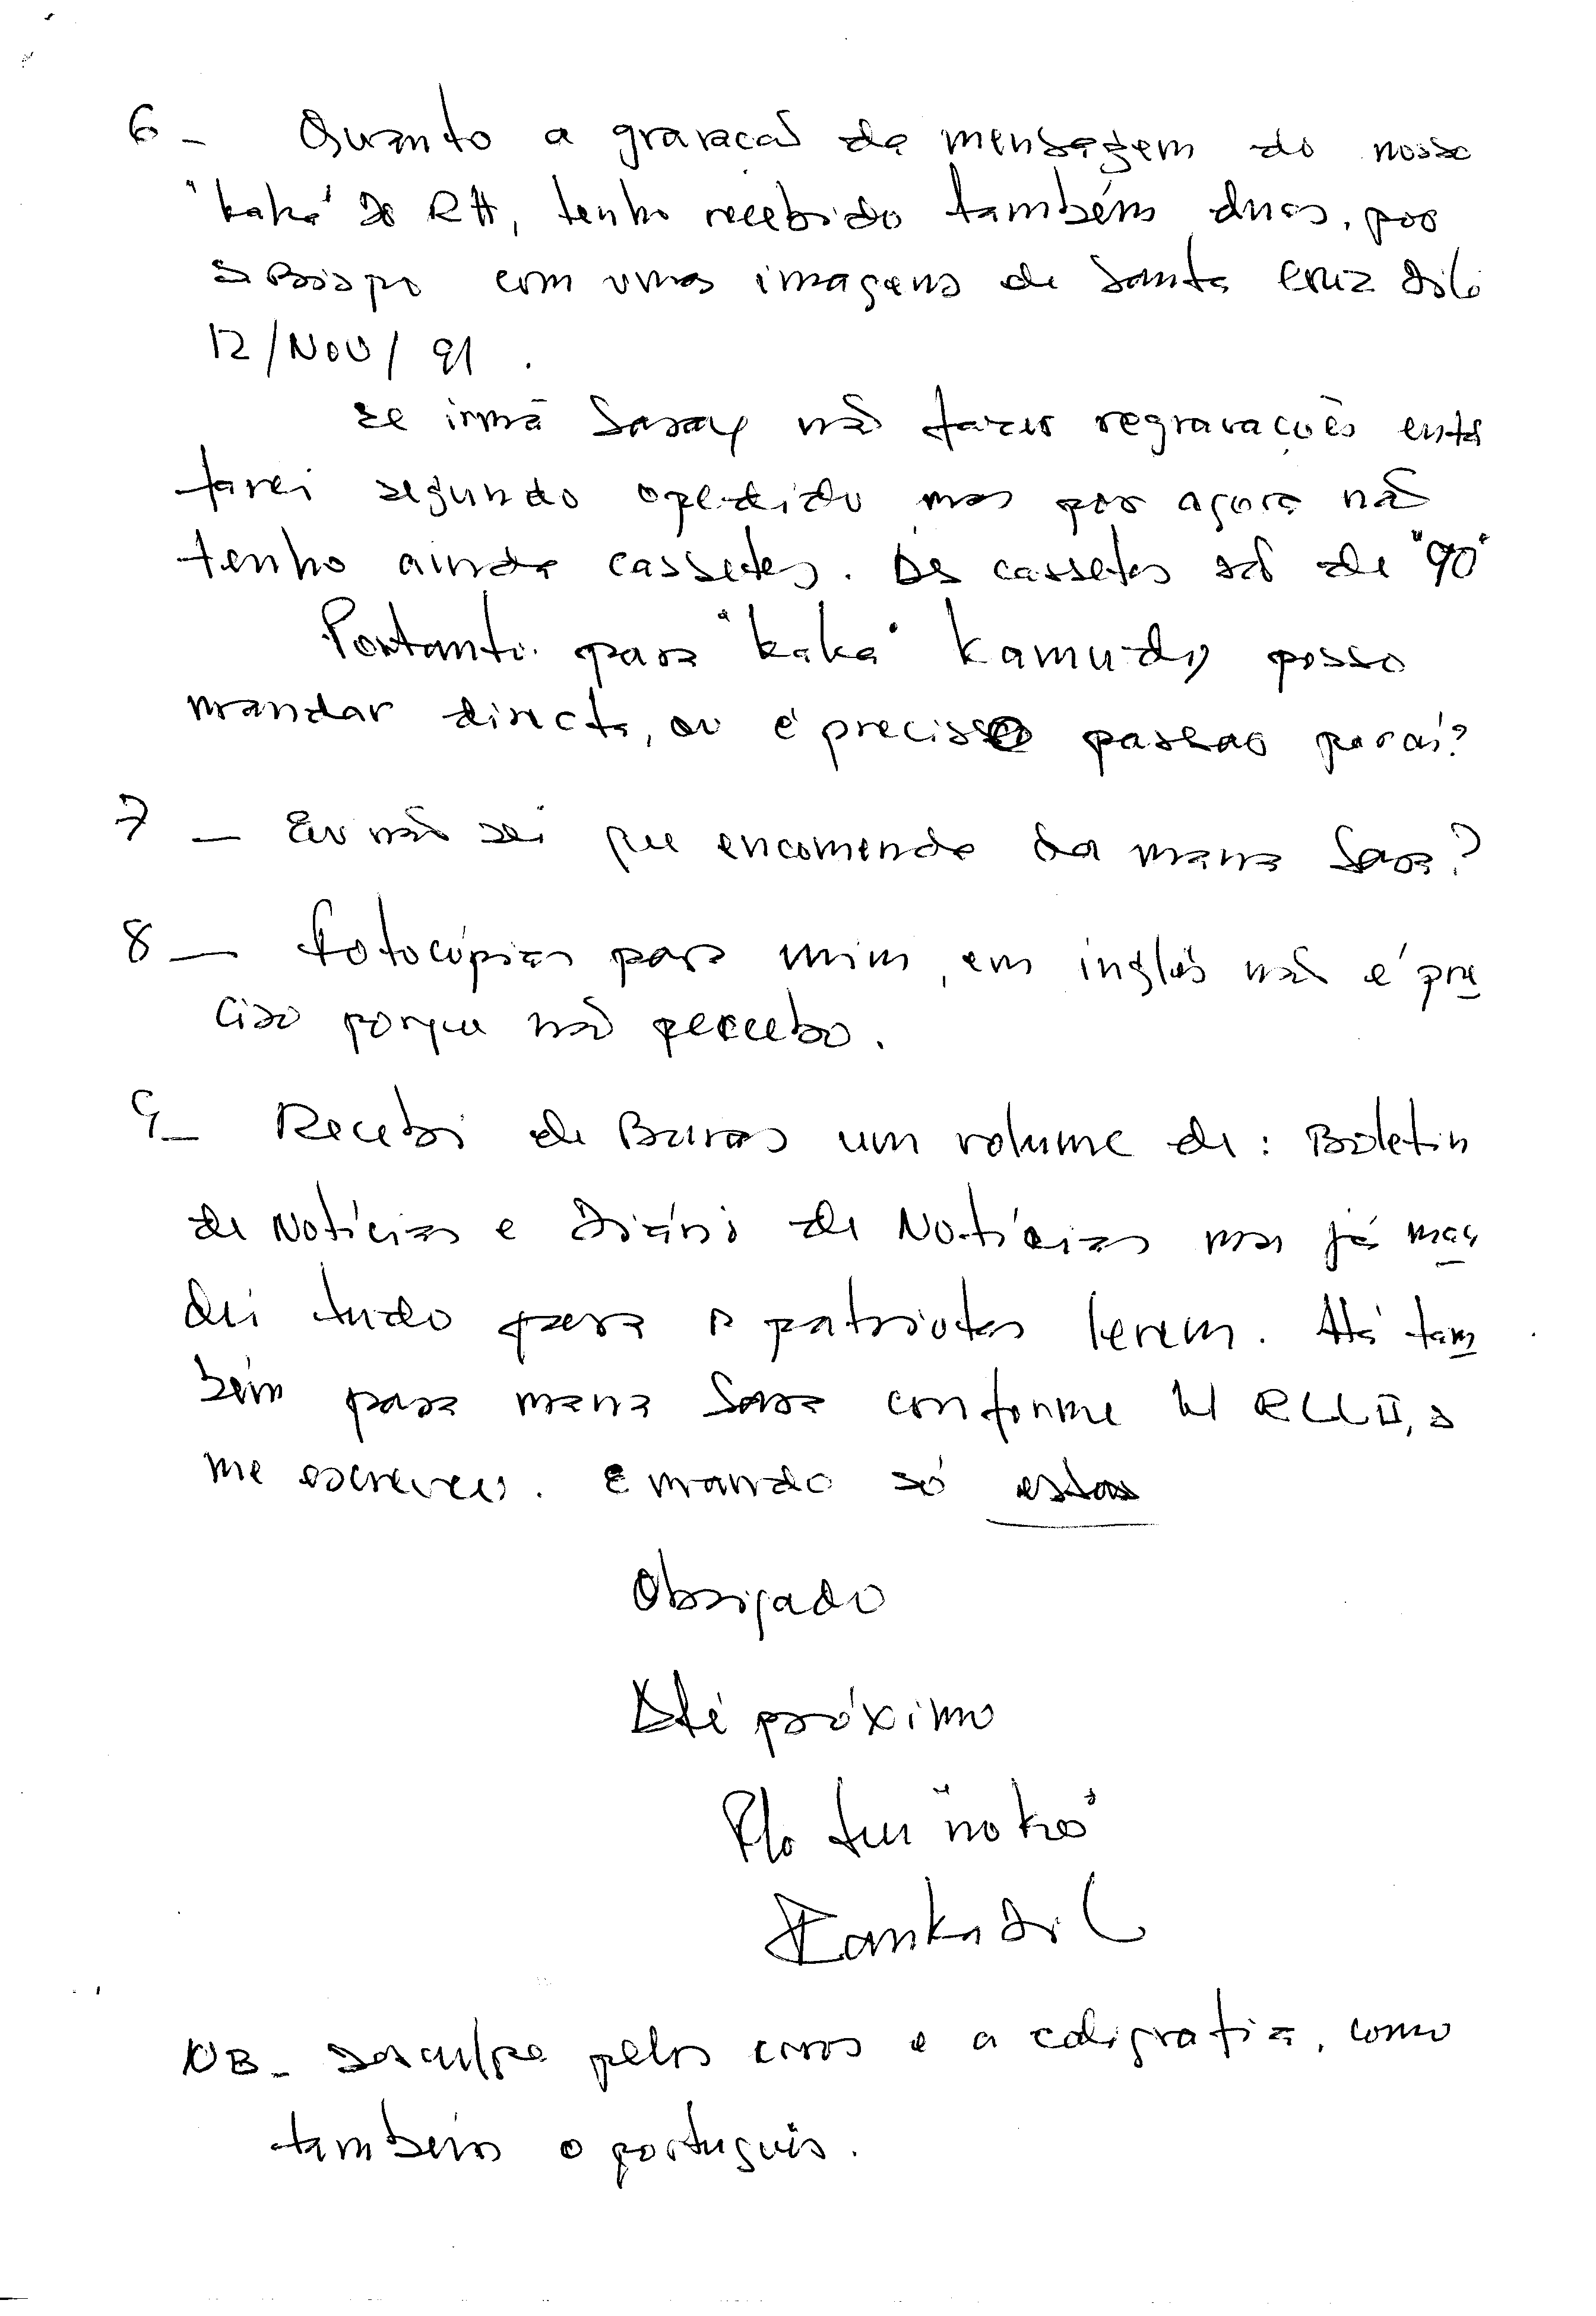 6 - Quanto a gravação da mensagem do nosso
"kaka" do RH, tenho recebido também duas, por
o Bispo com umas imagens de Santa Cruz Dili
12/NOV/91.
Se irmã Saray não fazer regravações entã
farei segundo o pedido mas por agora não
tenho ainda cassetes. As cassetes são de "90"
Portanto para "kaka" Kamudy posso
mandar directa, ou é preciso passar para aí?
7 - Eu não sei que encomenda da mana Sara?
8 - Fotocópias para mim, em inglês não é pre
ciso porque não percebo.
9 - Recebi de Buras um volume de: Boletin
de Notícias e Diário de Notícias mas já man
dei tudo para os patriotas lerem. Até tam
bém para mana Sara conforme W RLLII, o
me escreveu. E mando só estas
Obrigado
Até próximo
Plo teu "noko"
NB - Desculpe pelos erros e a caligrafia, como
também o português.